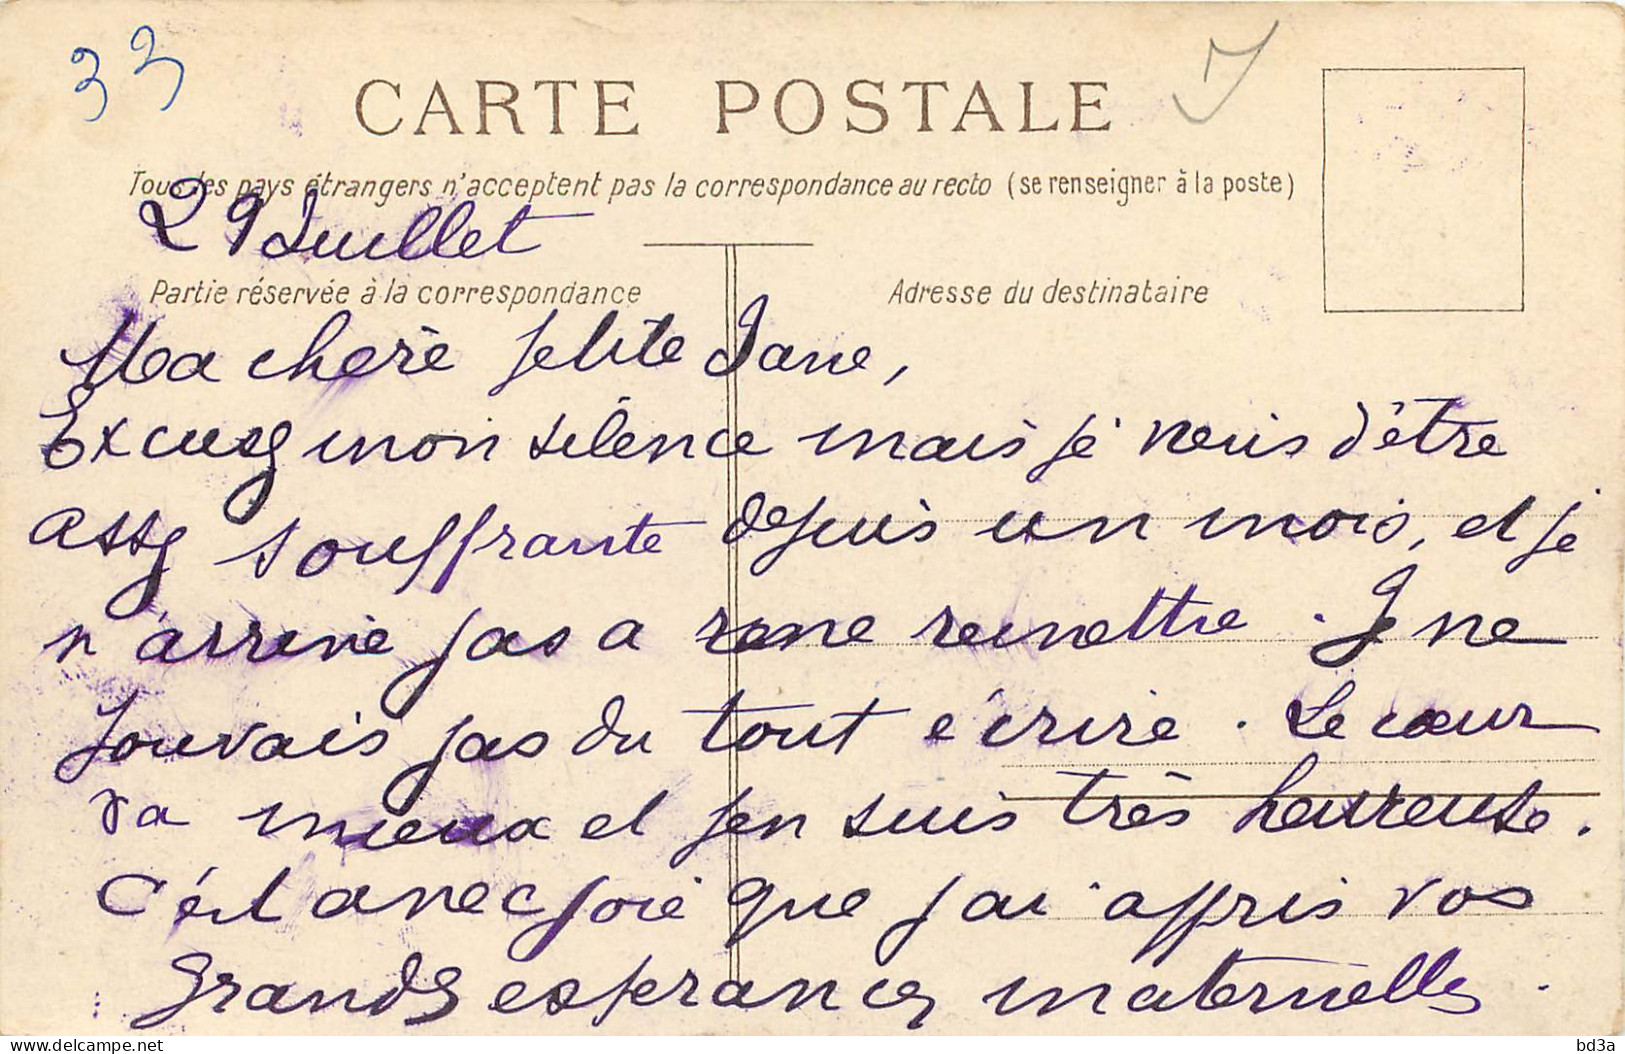 33
CARTE POSTALE
Tous les pays étrangers n'acceptent pas la correspondance au recto (se renseigner à la poste)
29 Juillet
Partie réservée à la correspondance
Adresse du destinataire
Ma chère petite Jane,
Excusez mon silence mais je viens d'être
assez souffrante depuis un mois, et je
n'arrive pas a me remettre. Je ne
pouvais pas du tout écrire. Le cœur
va mieux et j'en suis très heureuse.
C'est avec joie que j'ai appris vos
grandes esperances maternelles.
delcampe.net
bd3a